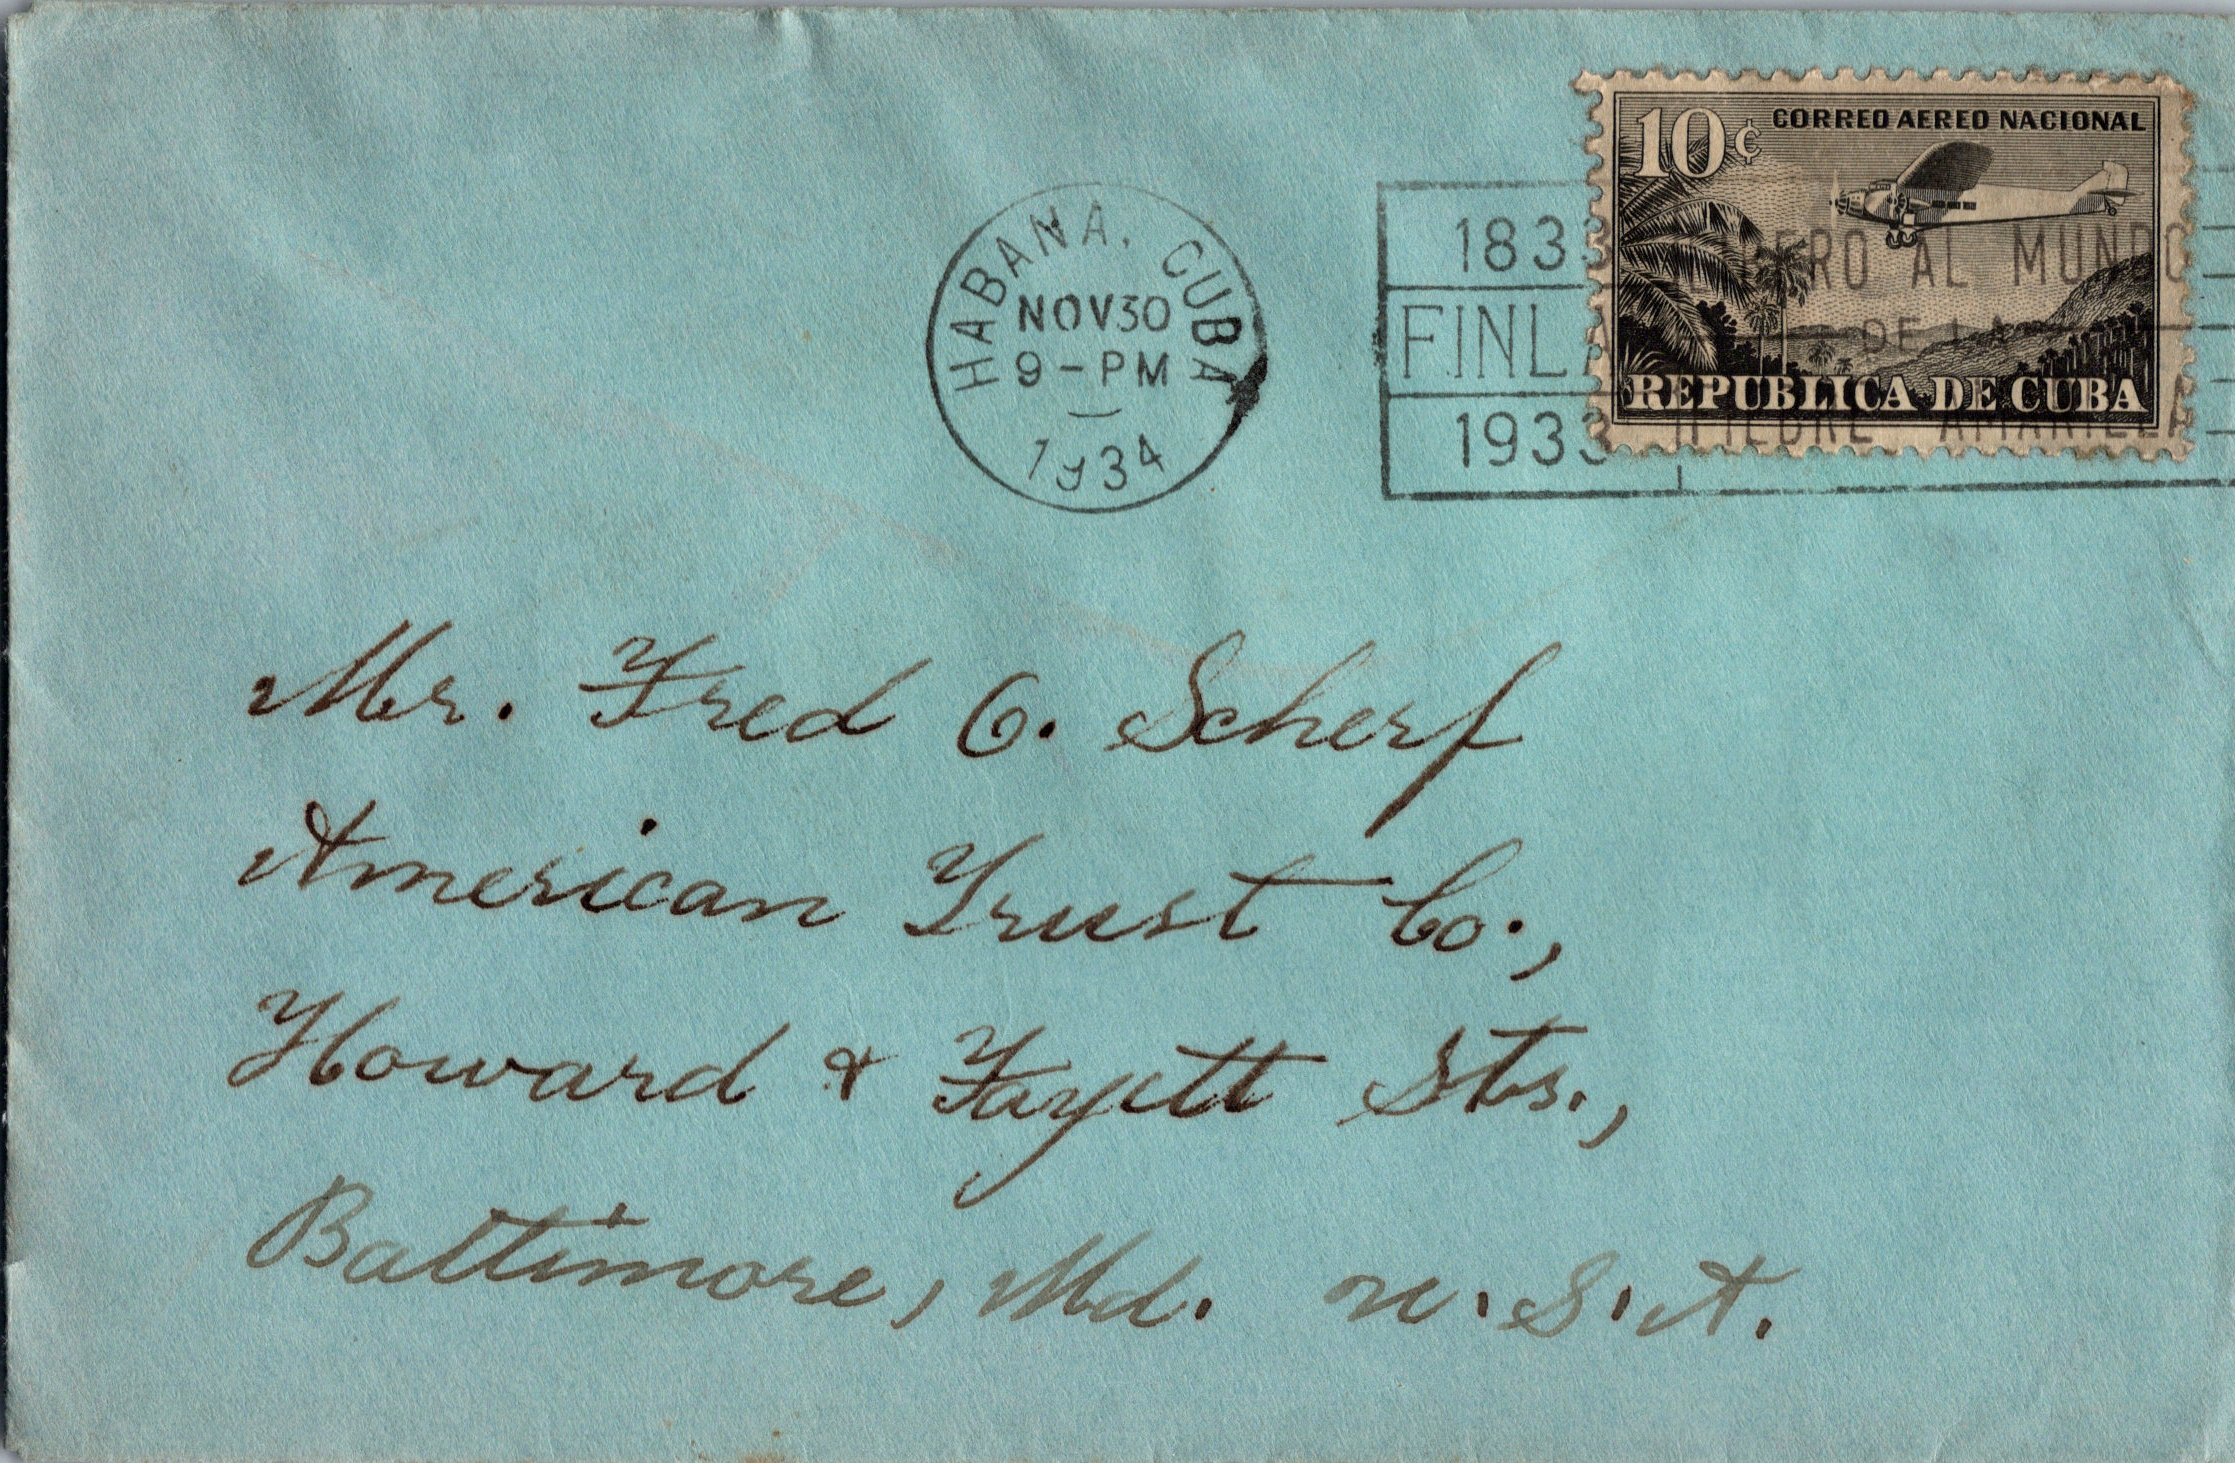 10¢ CORREO AEREO NACIONAL
REPUBLICA DE CUBA
HABANA, CUBA
NOV 30
9-PM
1934
1833
AL MUNDO
FINLA
DE LA
1933
FIEBRE AMARILLA
Mr. Fred Scherf
American Trust Co.,
Howard & Fayett Sts.,
Baltimore, Md. U.S.A.